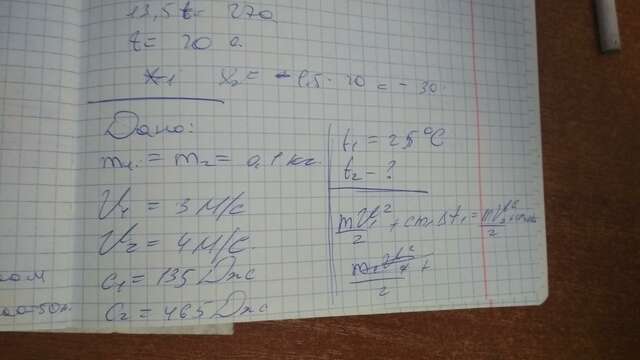 13,5 t = 270
t = 20 с
x₂ = - 1,5 · 20 = - 30
Дано:
m₁ = m₂ = 0,1 кг
V₁ = 3 м/с
V₂ = 4 м/с
c₁ = 135 Дж
c₂ = 465 Дж
t₁ = 25°C
t₂ - ?
mV₁²/2 + cm₁Δt₁ = mV₂²/2